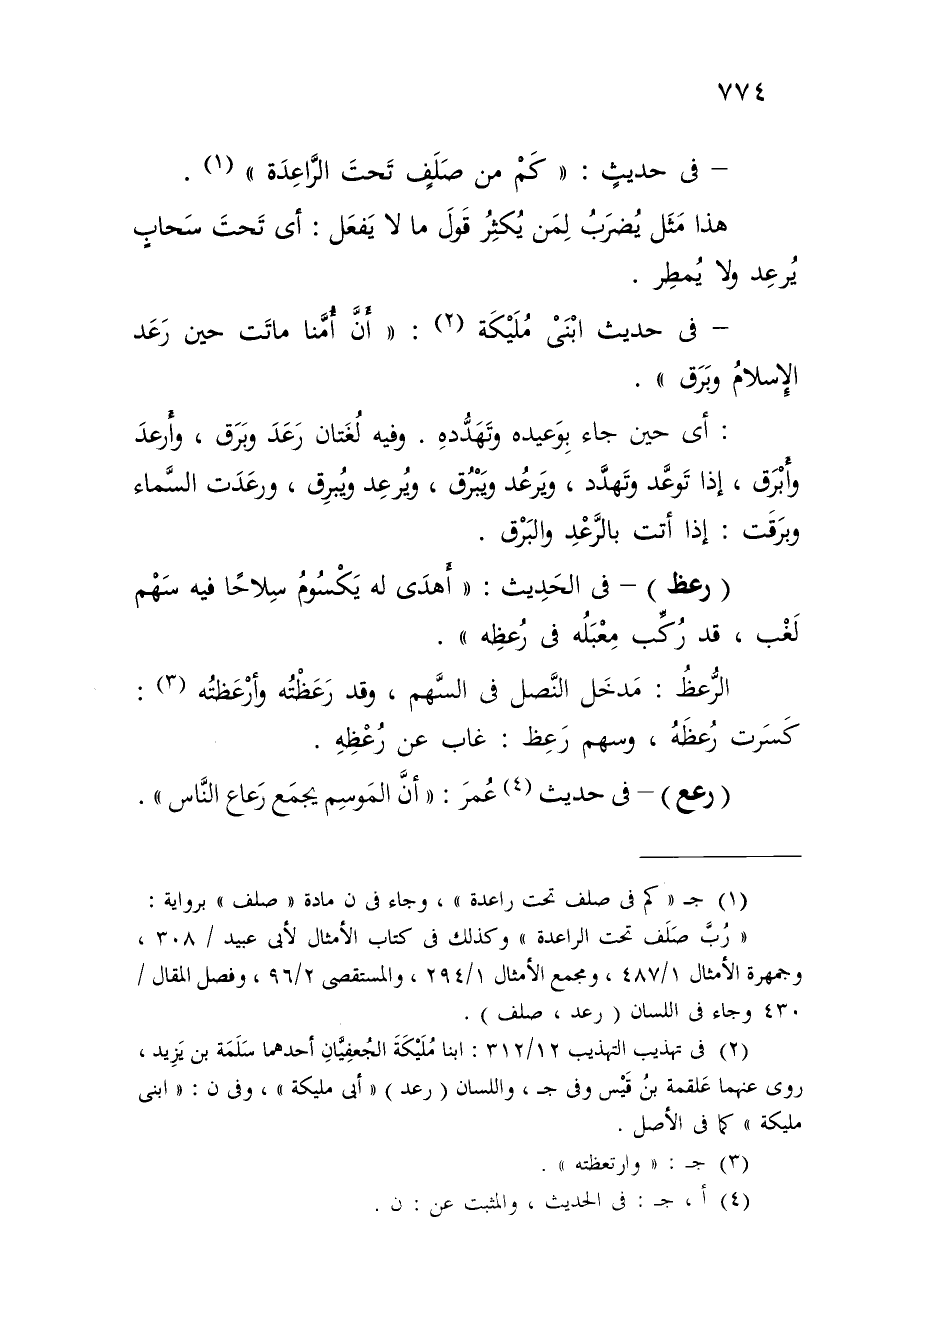 ٧٧٤
– فى حديثٍ : « كَمْ من صَلَفٍ تَحتَ الرَّاعِدَة » (١) .
هذا مَثَل يُضرَبُ لِمَن يُكثِرُ قَولَ ما لا يَفعَل : أى تَحتَ سَحابٍ
يُرعِد ولا يُمطِر .
– فى حديث ابْنَىْ مُلَيْكَة (٢) : « أَنَّ أُمَّنا ماتَت حين رَعَد
الإِسلامُ وبَرَق » .
: أى حين جاء بِوَعيده وتَهَدُّدهِ . وفيه لُغَتان رَعَدَ وبَرَق ، وأَرعدَ
وأَبْرَق ، إذا تَوعَّد وتَهدَّد ، ويَرعُد ويَبْرُق ، ويُرعِد ويُبرِق ، ورعَدَت السَّماء
وبرَقَت : إذا أتت بالرَّعْدِ والبَرْق .
( رعظ ) – فى الحَدِيث : « أَهدَى له يَكْسُومُ سِلاحًا فيه سَهْم
لَغْب ، قد رُكِّب مِعْبَلُه فى رُعظِه » .
الرُّعظُ : مَدخَل النَّصل فى السَّهم ، وقد رَعَظْتُه وأرْعَظتُه (٣) :
كَسَرت رُعظَهُ ، وسهم رَعِظ : غاب عن رُعْظِهِ .
( رعع ) – فى حديث (٤) عُمرَ : « أنَّ المَوسِم يجمَع رَعاع النَّاس » .
(١) جـ « كم فى صلف تحت راعدة » ، وجاء فى ن مادة « صلف » برواية :
« رُبَّ صَلَف تحت الراعدة » وكذلك فى كتاب الأمثال لأبى عبيد / ٣٠٨ ،
وجمهرة الأمثال ٤٨٧/١ ، ومجمع الأمثال ٢٩٤/١ ، والمستقصى ٩٦/٢ ، وفصل المقال /
٤٣٠ وجاء فى اللسان ( رعد ، صلف ) .
(٢) فى تهذيب التهذيب ٣١٢/١٢ : ابنا مُلَيْكَةَ الجُعفِيَّانِ أحدهما سَلَمَة بن يَزِيد ،
روى عنهما عَلقمة بنُ قَيْس وفى جـ ، واللسان ( رعد ) « أبى مليكة » ، وفى ن : « ابنى
مليكة » كما فى الأصل .
(٣) جـ : « وارتعظته » .
(٤) أ ، جـ : فى الحديث ، والمثبت عن : ن .